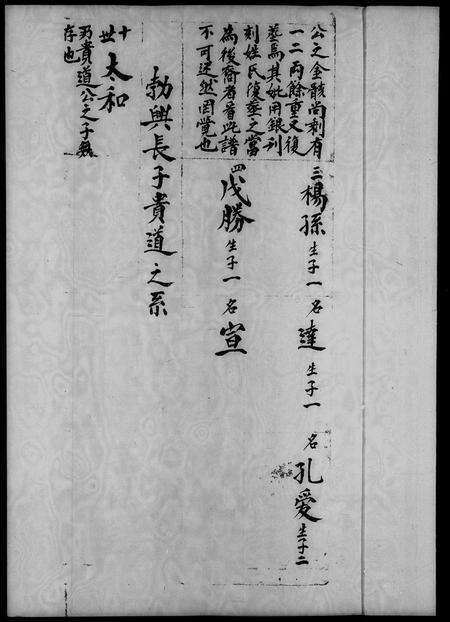 公之金骸尚剩有
一二兩餘重又復
葬焉其妣用銀刻
刻姓氏復塟之當
為後裔者首此譜
不可迷然罔覺也
三楊孫 生子一 名達 生子一 名孔愛 生子二
四戊勝 生子一 名宣
勃興長子貴道之系
十世 太和
乃貴道公之子
存也